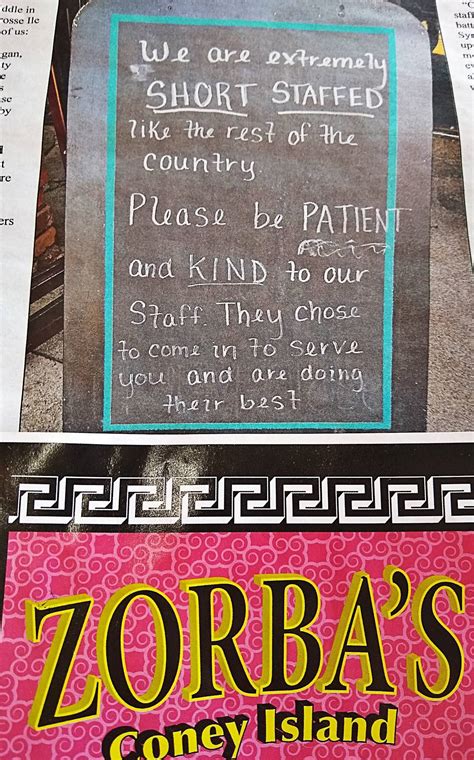 ddle in
rosse Ile
of us:
gan,
ty
by
ers
We are extremely
SHORT STAFFED
like the rest of the
country.
Please be PATIENT
and KIND to our
Staff. They chose
to come in to serve
you and are doing
their best
staff
batt
ZORBA'S
Coney Island